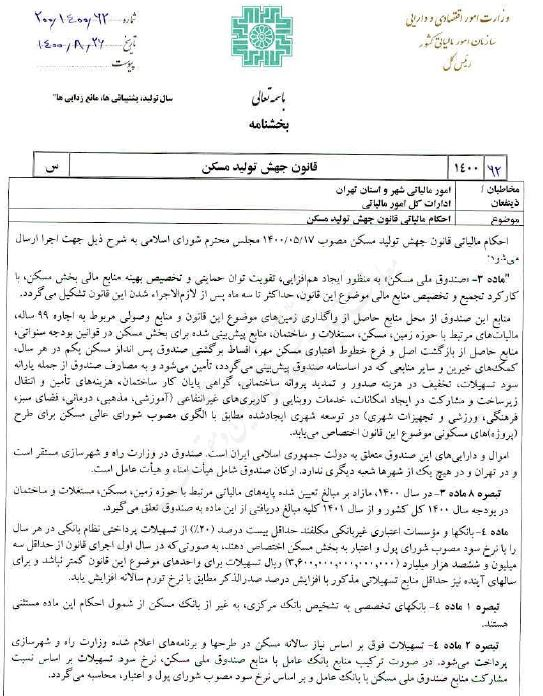 وزارت امور اقتصادی و دارایی
سازمان امور مالیاتی کشور
رئیس کل
شماره ۲۰۰/۱۴۰۰/۶۲
تاریخ ۱۴۰۰/۸/۲۶
پیوست
باسمه تعالی
سال تولید، پشتیبانی ها، مانع زدایی ها"
بخشنامه
۶۲ ۱۴۰۰ قانون جهش تولید مسکن س
مخاطبان / ذینفعان
امور مالیاتی شهر و استان تهران
ادارات کل امور مالیاتی
موضوع احکام مالیاتی قانون جهش تولید مسکن
احکام مالیاتی قانون جهش تولید مسکن مصوب ۱۴۰۰/۰۵/۱۷ مجلس محترم شورای اسلامی به شرح ذیل جهت اجرا ارسال
می‌شود:
"ماده ۳- «صندوق ملی مسکن» به منظور ایجاد هم‌افزایی، تقویت توان حمایتی و تخصیص بهینه منابع مالی بخش مسکن، با
کارکرد تجمیع و تخصیص منابع مالی موضوع این قانون، حداکثر تا سه ماه پس از لازم‌الاجراء شدن این قانون تشکیل می‌گردد.
منابع این صندوق از محل منابع حاصل از واگذاری زمین‌های موضوع این قانون و منابع وصولی مربوط به اجاره ۹۹ ساله،
مالیات‌های مرتبط با حوزه زمین، مسکن، مستغلات و ساختمان، منابع پیش‌بینی شده برای بخش مسکن در قوانین بودجه سنواتی،
منابع حاصل از بازگشت اصل و فرع خطوط اعتباری مسکن مهر، اقساط برگشتی صندوق پس انداز مسکن یکم در هر سال،
کمک‌های خیرین و سایر منابعی که در اساسنامه صندوق پیش‌بینی می‌گردد، تأمین می‌شود و به مصارف صندوق از جمله یارانه
سود تسهیلات، تخفیف در هزینه صدور و تمدید پروانه ساختمانی، گواهی پایان کار ساختمان، هزینه‌های تأمین و انتقال
زیرساخت و مشارکت در ایجاد امکانات، خدمات روبنایی و کاربری‌های غیرانتفاعی (آموزشی، مذهبی، درمانی، فضای سبز،
فرهنگی، ورزشی و تجهیزات شهری) در توسعه شهری ایجادشده مطابق با الگوی مصوب شورای عالی مسکن برای طرح
(پروژه)های مسکونی موضوع این قانون اختصاص می‌یابد.
اموال و دارایی‌های این صندوق متعلق به دولت جمهوری اسلامی ایران است. صندوق در وزارت راه و شهرسازی مستقر است
و در تهران و در هیچ یک از شهرها شعبه دیگری ندارد. ارکان صندوق شامل هیأت امناء و هیأت عامل است.
تبصره ۸ ماده ۳- در سال ۱۴۰۰، مازاد بر مبالغ تعیین شده پایه‌های مالیاتی مرتبط با حوزه زمین، مسکن، مستغلات و ساختمان
در بودجه سال ۱۴۰۰ کل کشور و از سال ۱۴۰۱ کلیه مبالغ دریافتی از این ماده به صندوق تعلق می‌گیرد.
ماده ۴- بانکها و مؤسسات اعتباری غیربانکی مکلفند حداقل بیست درصد (۲۰٪) از تسهیلات پرداختی نظام بانکی در هر سال
را با نرخ سود مصوب شورای پول و اعتبار به بخش مسکن اختصاص دهند، به صورتی که در سال اول اجرای قانون از حداقل سه
میلیون و ششصد هزار میلیارد (۳,۶۰۰,۰۰۰,۰۰۰,۰۰۰,۰۰۰) ریال تسهیلات برای واحدهای موضوع این قانون کمتر نباشد و برای
سالهای آینده نیز حداقل منابع تسهیلاتی مذکور با افزایش درصد صدرالذکر مطابق با نرخ تورم سالانه افزایش یابد.
تبصره ۱ ماده ۴- بانکهای تخصصی به تشخیص بانک مرکزی، به غیر از بانک مسکن از شمول احکام این ماده مستثنی
هستند.
تبصره ۲ ماده ۴- تسهیلات فوق بر اساس نیاز سالانه مسکن در طرحها و برنامه‌های اعلام شده وزارت راه و شهرسازی
پرداخت می‌شود. در صورت ترکیب منابع بانک عامل با منابع صندوق ملی مسکن، نرخ سود تسهیلات بر اساس نسبت
مشارکت منابع صندوق ملی مسکن با بانک عامل و بر اساس نرخ سود مصوب شورای پول و اعتبار، محاسبه می‌گردد.